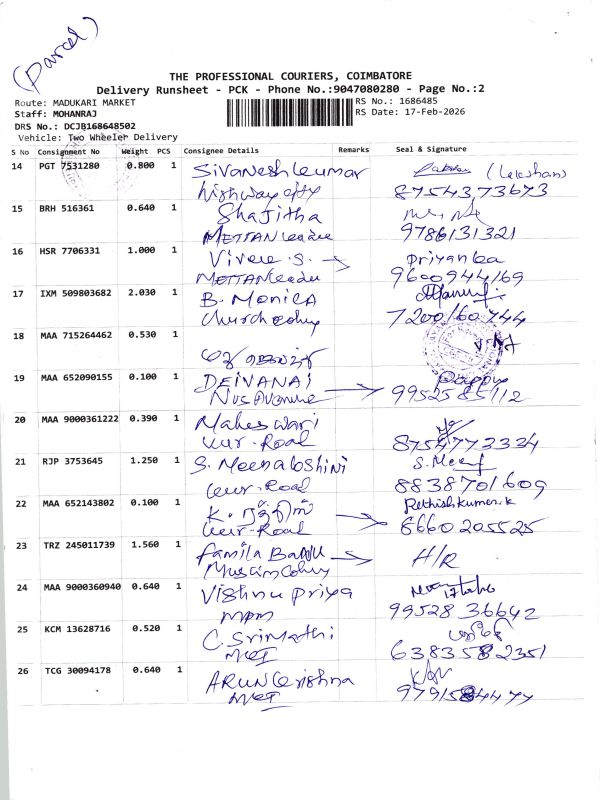 (Parcel)
THE PROFESSIONAL COURIERS, COIMBATORE
Delivery Runsheet - PCK - Phone No.:9047080280 - Page No.:2
Route: MADUKARI MARKET
RS No.: 1686485
Staff: MOHANRAJ
RS Date: 17-Feb-2026
DRS No.: DCJB168648502
Vehicle: Two Wheeler Delivery
S No Consignment No Weight PCS Consignee Details Remarks Seal & Signature
14 PGT 7531280 0.800 1 Sivaneshkumar (Lakshan)
highway city 8754373673
15 BRH 516361 0.640 1 Shajitha
METTANkadu 9786131321
16 HSR 7706331 1.000 1 Vivek.S. Priyanka
METTANkadu 9600944169
17 IXM 509803682 2.030 1 B. Monica
Church colony 7200160744
18 MAA 715264462 0.530 1
19 MAA 652090155 0.100 1 DEIVANAI Pappu
9952585112
20 MAA 9000361222 0.390 1 Maheswari
Kur-Road 8754773334
21 RJP 3753645 1.250 1 S. Meenakshini S. Meen
Kur-Road 8838701609
22 MAA 652143802 0.100 1 Rethishkumar.k
Kur-Road 6660205525
23 TRZ 245011739 1.560 1 Famila BANU H/R
Muslim Colony
24 MAA 9000360940 0.640 1 Vishnu Priya
MPM 9952836642
25 KCM 13628716 0.520 1 C. Srimathi
MKT 6383582351
26 TCG 30094178 0.640 1 ARUNKrishna
MKT 9791584477